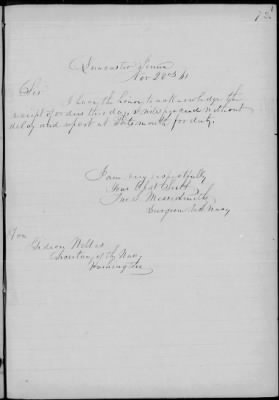 Lancaster Penna
Nov 22nd 61
Sir
I have the honor to acknowledge the
receipt of orders this day, to proceed without
delay and report at Portsmouth for duty.
I am very respectfully
Your Obdt Servt
Jno. S. Messersmith
Surgeon U.S. Navy
Hon
Gideon Welles
Secretary of the Navy
Washington